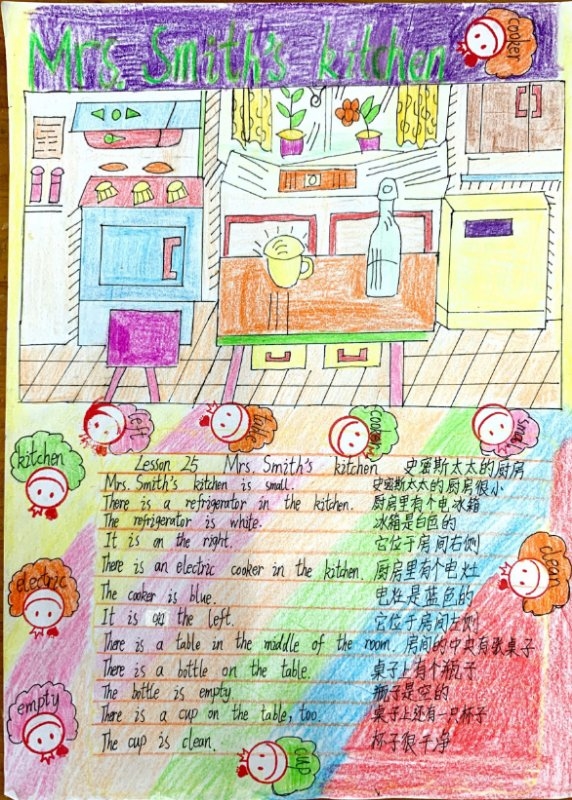 Mrs. Smith's kitchen
cooker
left
table
cooker
small
kitchen
Lesson 25 Mrs. Smith's kitchen 史密斯太太的厨房
Mrs. Smith's kitchen is small. 史密斯太太的厨房很小
There is a refrigerator in the kitchen. 厨房里有个电冰箱
The refrigerator is white. 冰箱是白色的
It is on the right. 它位于房间右侧
There is an electric cooker in the kitchen. 厨房里有个电灶
clean
electric
The cooker is blue. 电灶是蓝色的
It is on the left. 它位于房间左侧
There is a table in the middle of the room. 房间的中央有张桌子
There is a bottle on the table. 桌子上有个瓶子
empty
The bottle is empty 瓶子是空的
There is a cup on the table, too. 桌子上还有一只杯子
The cup is clean. 杯子很干净
cup